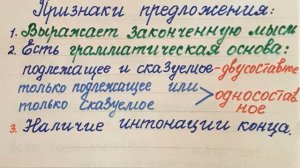 Признаки предложения:
1. Выражает законченную мысль
2. Есть грамматическая основа:
подлежащее и сказуемое - двусоставное
только подлежащее или
только сказуемое > односостав
ное
3. Наличие интонации конца.